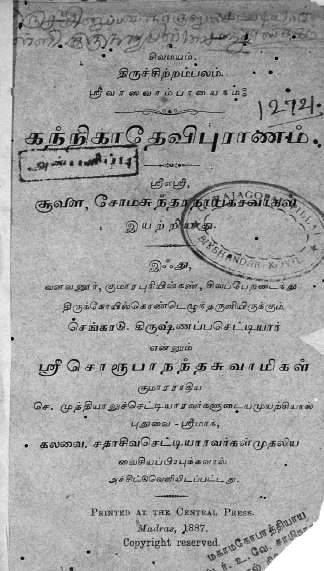 சிவமயம்.
திருச்சிற்றம்பலம்.
ஸ்ரீவாஸவாம்பாயைநம:
12721
கந்நிகாதேவிபுராணம்.
அன்பளிப்பு
ஸ்ரீலஸ்ரீ,
சூவிள, சோமசுந்தர
இயற்றியது.
இஃது,
வளவனூர், குமாரபுரியின்கண், சிவப்பேறடைந்து
திருக்கோயில்கொண்டெழுந்தருளியிருக்கும்
செங்காடு. கிருஷ்ணப்பசெட்டியார்
என்னும்
ஸ்ரீசொரூபாநந்தசுவாமிகள்
குமாரராகிய
செ. முத்தியாலுச்செட்டியாரவர்களுடையமுயற்சியால்
புதுவை - ஸ்ரீமாந்,
கலவை. சதாசிவசெட்டியாரவர்கள்முதலிய
வைசியப்பிரபுக்களால்
அச்சிட்வெளியிடப்பட்டது.
PRINTED AT THE CENTRAL PRESS.
Madras, 1887.
Copyright reserved.
மகாமகோபாத்தியாய
உ. வே.